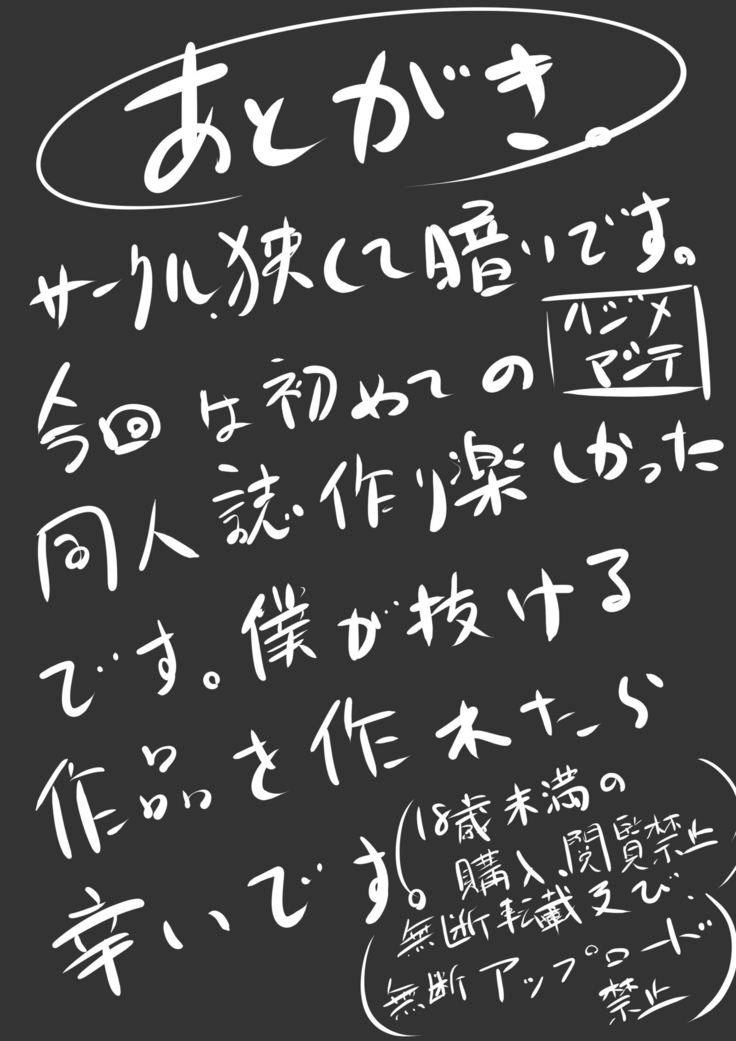 あとがき。
サークル、狭くて暗いです。
今回は初めての
ハジメ
マシテ
同人誌作り楽しかった
です。僕が抜ける
作品を作れたら
辛いです。
(18歳未満の
購入、閲覧禁止)
(無断転載及び、
無断アップロード
禁止)